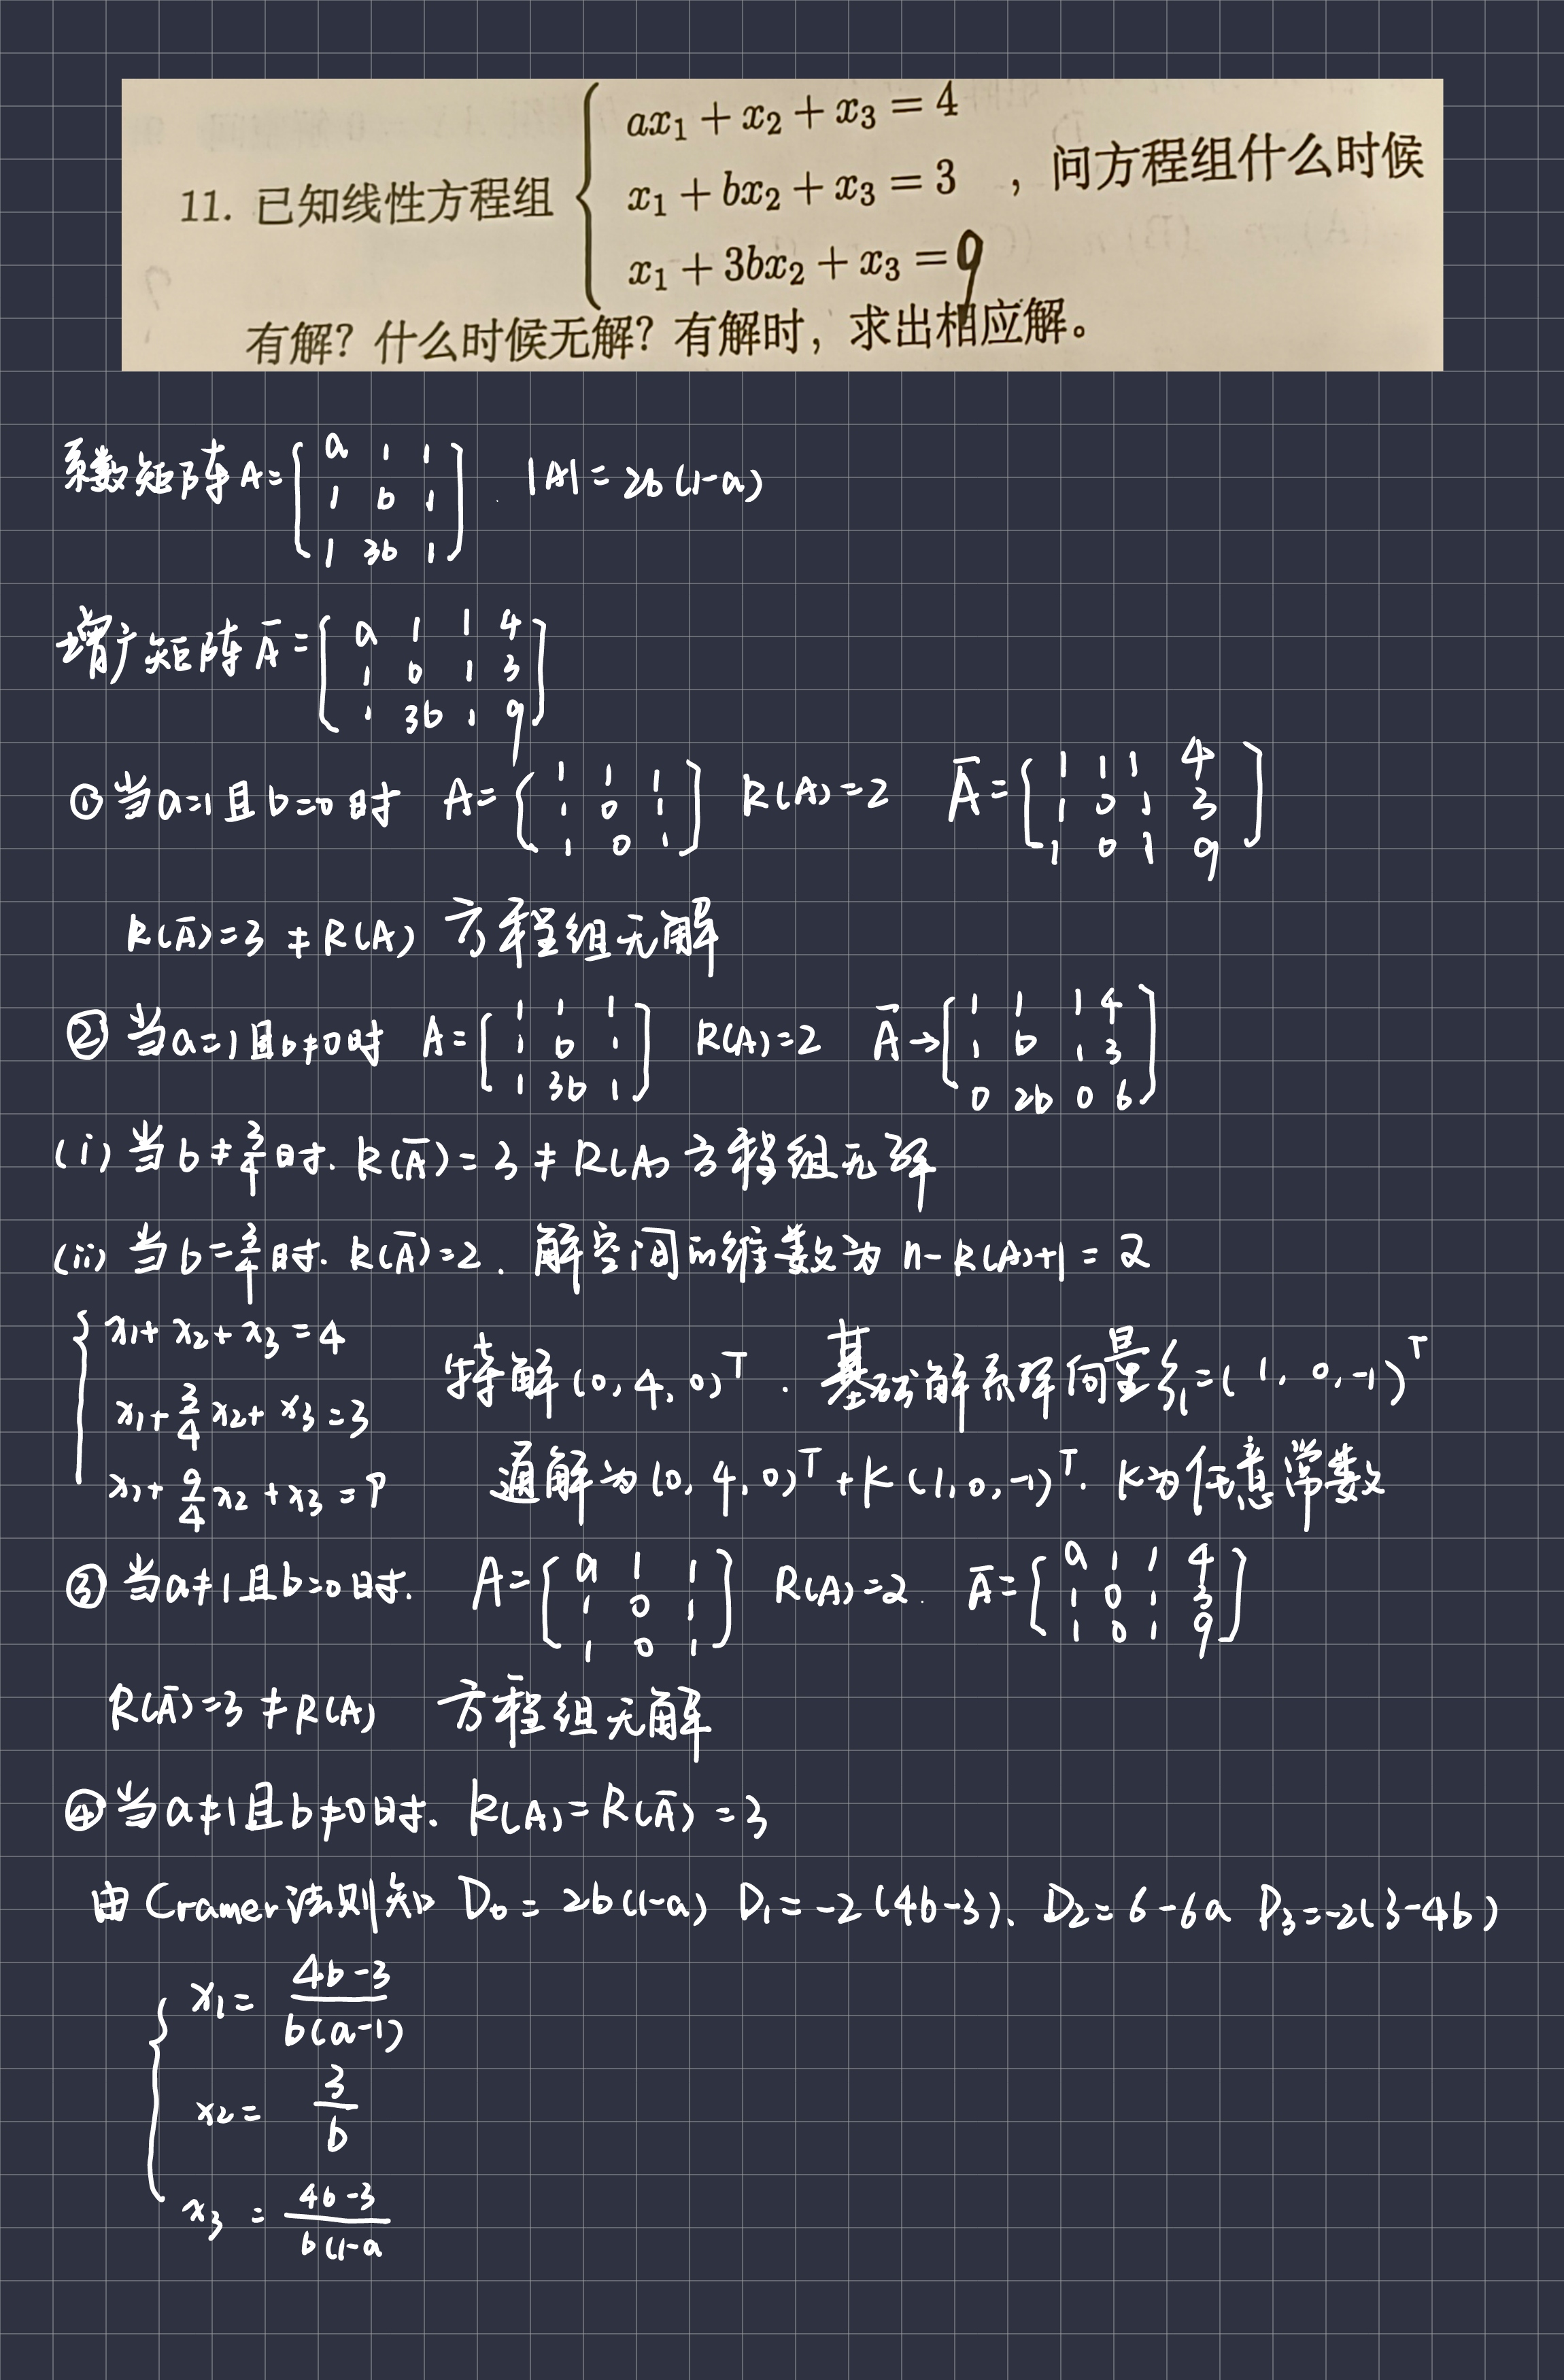 11. 已知线性方程组 { ax₁ + x₂ + x₃ = 4
x₁ + bx₂ + x₃ = 3 ，问方程组什么时候
x₁ + 3bx₂ + x₃ = 9
有解？什么时候无解？有解时，求出相应解。
系数矩阵 A = [a 1 1; 1 b 1; 1 3b 1] . |A| = 2b(1-a)
增广矩阵 Ā = [a 1 1 4; 1 b 1 3; 1 3b 1 9]
① 当a=1且b=0时 A = [1 1 1; 1 0 1; 1 0 1] R(A)=2 Ā = [1 1 1 4; 1 0 1 3; 1 0 1 9]
R(Ā)=3 ≠ R(A) 方程组无解
② 当a=1且b≠0时 A = [1 1 1; 1 b 1; 1 3b 1] R(A)=2 Ā → [1 1 1 4; 1 b 1 3; 0 2b 0 6]
(i) 当b≠3/4时. R(Ā)=3≠R(A) 方程组无解
(ii) 当b=3/4时. R(Ā)=2. 解空间的维数为 n-R(A)+1 = 2
{ x₁+x₂+x₃=4
x₁+3/4x₂+x₃=3
x₁+9/4x₂+x₃=9
特解(0,4,0)ᵀ. 基础解系解向量ξ₁=(1,0,-1)ᵀ
通解为(0,4,0)ᵀ+K(1,0,-1)ᵀ. K为任意常数
③ 当a≠1且b=0时. A = [a 1 1; 1 0 1; 1 0 1] R(A)=2. Ā = [a 1 1 4; 1 0 1 3; 1 0 1 9]
R(Ā)=3≠R(A) 方程组无解
④ 当a≠1且b≠0时. R(A)=R(Ā)=3
由Cramer法则知 D₀=2b(1-a) D₁=-2(4b-3). D₂=6-6a D₃=-2(3-4b)
{ x₁ = (4b-3)/b(a-1)
x₂ = 3/b
x₃ = 4b-3/b(1-a